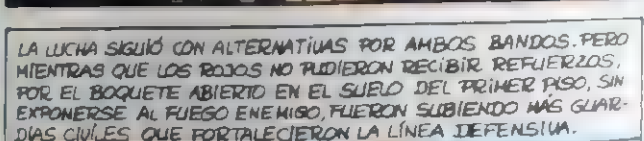 LA LUCHA SIGUIÓ CON ALTERNATIVAS POR AMBOS BANDOS. PERO
MIENTRAS QUE LOS ROJOS NO PUDIERON RECIBIR REFUERZOS,
POR EL BOQUETE ABIERTO EN EL SUELO DEL PRIMER PISO, SIN
EXPONERSE AL FUEGO ENEMIGO, FUERON SUBIENDO MÁS GUAR-
DIAS CIVILES QUE FORTALECIERON LA LÍNEA DEFENSIVA.